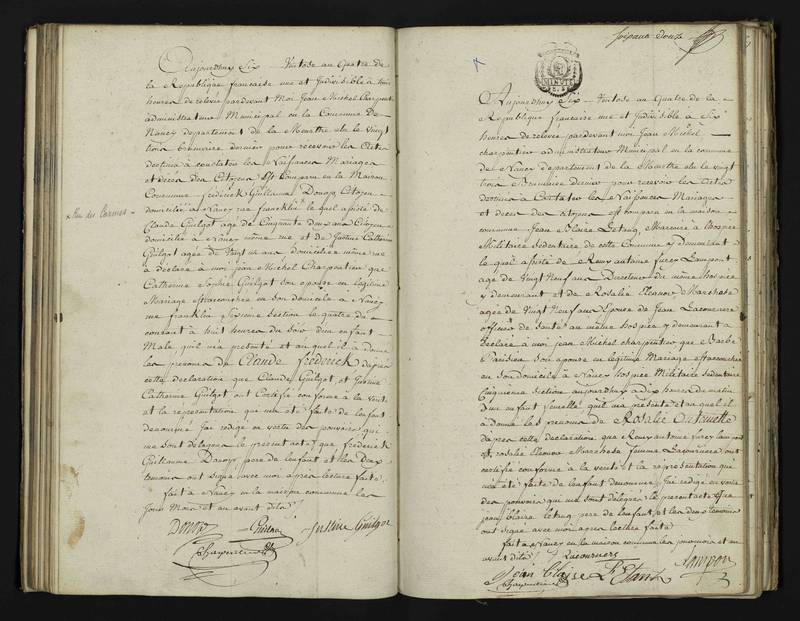 Aujourdhuy Six Ventose au Quatre de
la Republique française une et Indivisible à huit
heures de relevée pardevant Moi Jean Michel Charpentier
administrateur Municipal en la Commune De
Nancy departement de la Meurthe elu le vingt
trois brumaire dernier pour recevoir les Actes
destiné à constater les Naissances Mariages
et décès des Citoyens Est Comparu en la Maison
Commune frederick Guillaume Citoyen
domicilié à Nancy rue franklin le quel assisté de
Claude Guilgot agé de Cinquante deux ans Citoyen
domicilié à Nancy même rue et de Justine Catherine
Guilgot agée de Vingt un ans domiciliée même rue
a déclaré à moi jean Michel Charpentier que
Catherine Sophie Guilgot son epouse en legitime
Mariage est accouchée en son domicile à Nancy
rue franklin Sixieme Section le quatre du
courant à huit heures du soir d'un enfant
Male, quil m'a présenté et au quel il a donné
les prenoms de Claude frederick d'après
cette déclaration que Claude Guilgot et Justine
Catherine Guilgot ont Certifié conforme à la Verité
et la représentation qui m'a été faite de lenfant
denommé jai redigé en vertu des pouvoirs qui
me sont délégués le présent acte, que frederick
Guillaume père de lenfant et les deux
temoins ont signé avec moi après lecture faite
fait à Nancy en la maison commune les
jour Mois et an avant dits
Justine Guilgot
Charpentier
Rue des Carmes
Aujourdhuy Six Ventose au Quatre de la
Republique française une et Indivisible à Six
heures de relevée pardevant moi Jean Michel
charpentier administrateur Municipal en la commune
de Nancy departement de la Meurthe elu le vingt
trois Brumaire dernier pour recevoir les Actes
destinés à Constater les Naissances Mariages
et deces des citoyens est comparu en la maison
commune Jean Blaise à l'hospice
Militaire Sedentaire de cette Commune y demeurant
le quel assisté de Remy antoine furcy Lampon
agé de Vingt Neuf ans Directeur du même hospice
y demeurant et de Rosalie Eleonor
agée de Vingt Neuf ans Epouse de Jean
officier de Santé au même hospice y demeurant a
déclaré à moi jean Michel charpentier que Barbe
Parisien Son epouse en legitime Mariage est accouchée
en son domicile à Nancy hospice Militaire Sedentaire
Cinquieme Section aujourdhuy à dix heures du matin
dun enfant femelle quil m'a présenté et au quel il
a donné les prenoms de Rosalie Antoinette
dapres cette déclaration que Remy antoine furcy Lampon
et rosalie Eleonor femme ont
certifié conforme à la verité et la réprésentation qui
m'a été faite de lenfant denommé jai redigé en vertu
des pouvoirs qui me sont délégués le présent acte Que
jean blaise père de lenfant et les deux temoins
ont signé avec moi après lecture faite
fait à Nancy en la maison commune les jour mois et an
avant dits
Jean Blaise
Lampon
Charpentier